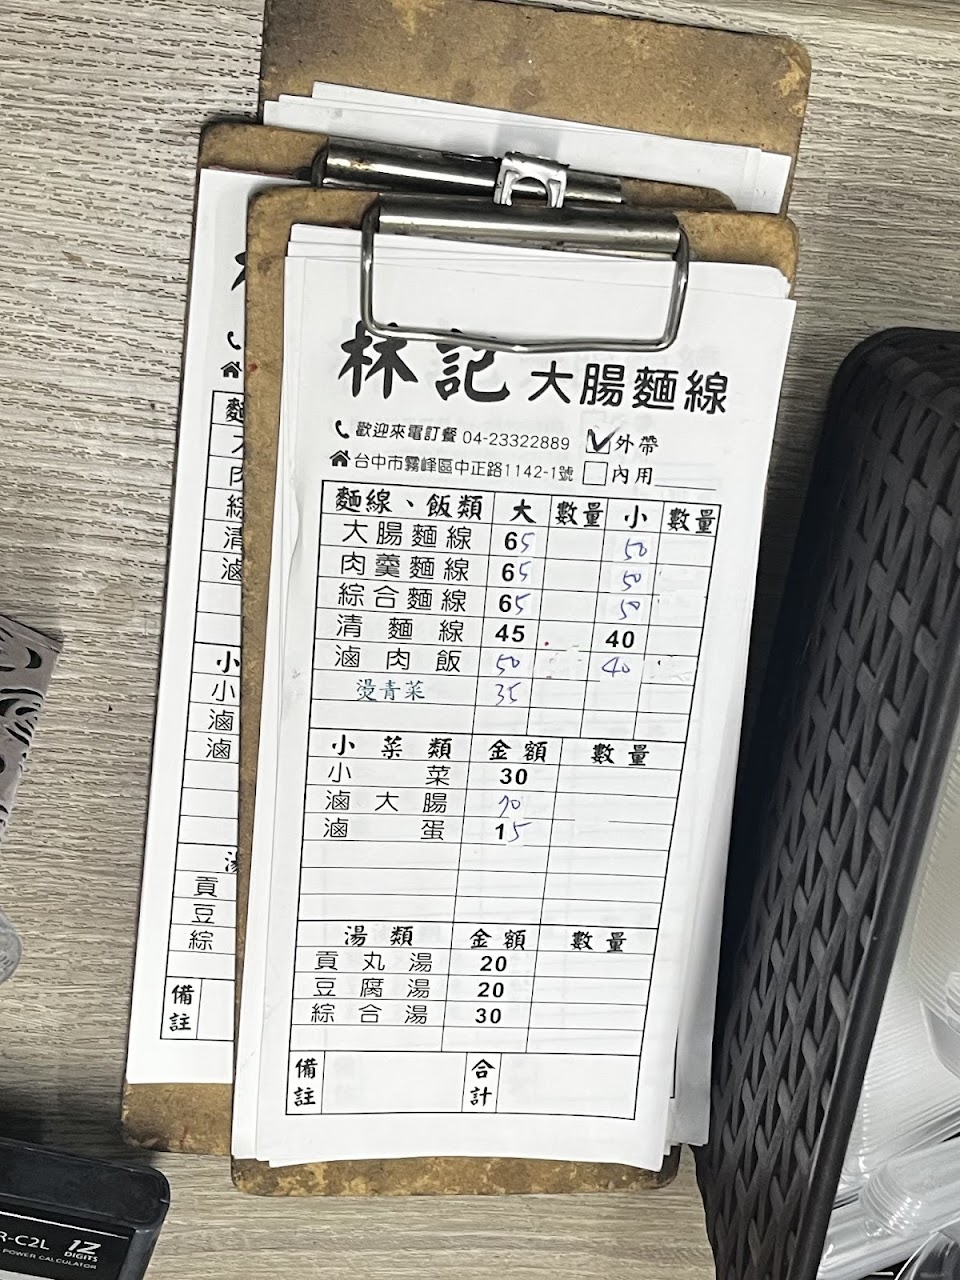 林記大腸麵線
歡迎來電訂餐 04-23322889 外帶
台中市霧峰區中正路1142-1號 內用
麵線、飯類 大 數量 小 數量
大腸麵線 65 50
肉羹麵線 65 50
綜合麵線 65 50
清麵線 45 40
滷肉飯 50 40
燙青菜 35
小菜類 金額 數量
小菜 30
滷大腸 70
滷蛋 15
湯類 金額 數量
貢丸湯 20
豆腐湯 20
綜合湯 30
備註 合計
麵
肉
綜
清
滷
小
小
滷
滷
湯
貢
豆
綜
備註
R-C2L 12 DIGITS
POWER CALCULATOR